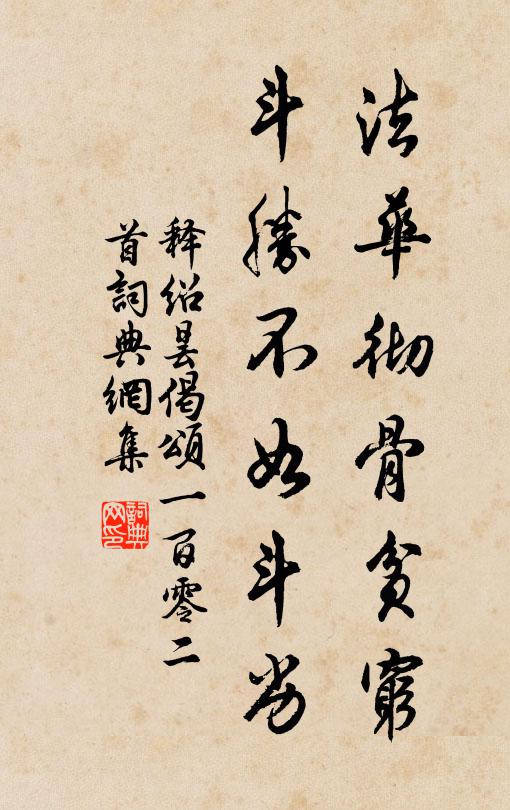 法華彻骨貧窮
斗勝不如斗劣
释绍昙偈頌一百零二
首詞典網集
詞典網印